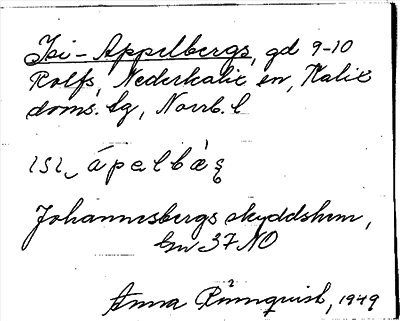 Isi-Appelbergs, gd 9-10
Rolfs, Nederkalix sn, Kalix
doms. lg, Norrb. l
ɪsɪ‿ápelbæ̀ʂ
Johannesbergs skyddshem,
Gn 37 NO
Anna Rönnqvist, 1949